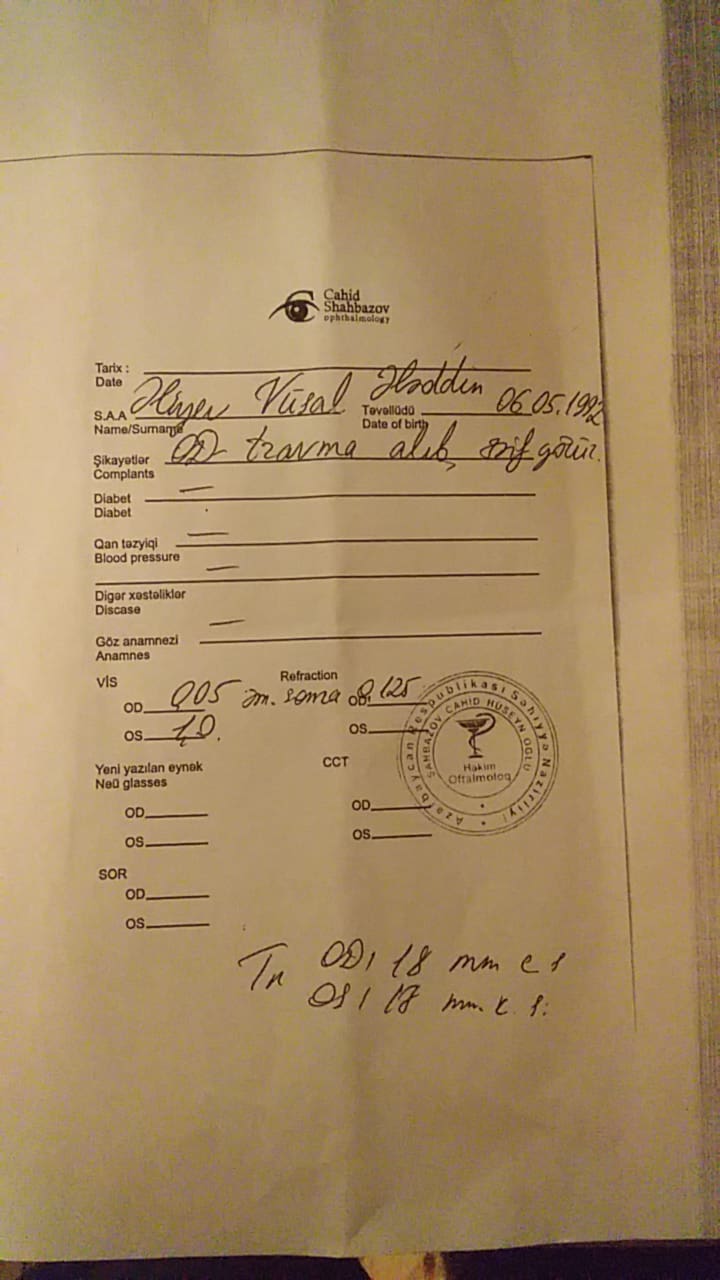 Cahid
Shahbazov
ophthalmology
Tarix :
Date
S.A.A Əliyev Vüsal Ələddin Təvəllüdü 06.05.1992
Name/Surname Date of birth
Şikayətlər OD travma alıb, zəif görür.
Complants
Diabet —
Diabet
Qan təzyiqi —
Blood pressure
—
Digər xəstəliklər
Discase
Göz anamnezi —
Anamnes
VİS Refraction
OD 0,05 OD 0,125
OS 1,0. OS
Yeni yazılan eynək CCT
Neü glasses
OD OD
OS OS
SOR
OD
OS
Azərbaycan Respublikası Səhiyyə Nazirliyi
ŞAHBAZOV CAHİD HÜSEYN OĞLU
Həkim
Oftalmoloq
Tn OD 18 mm c s
OS 17 mm. c. s.